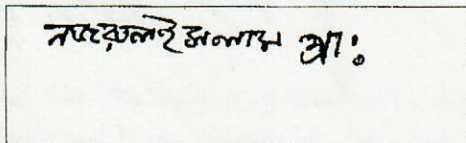 নজরুল ইসলাম প্রাঃ